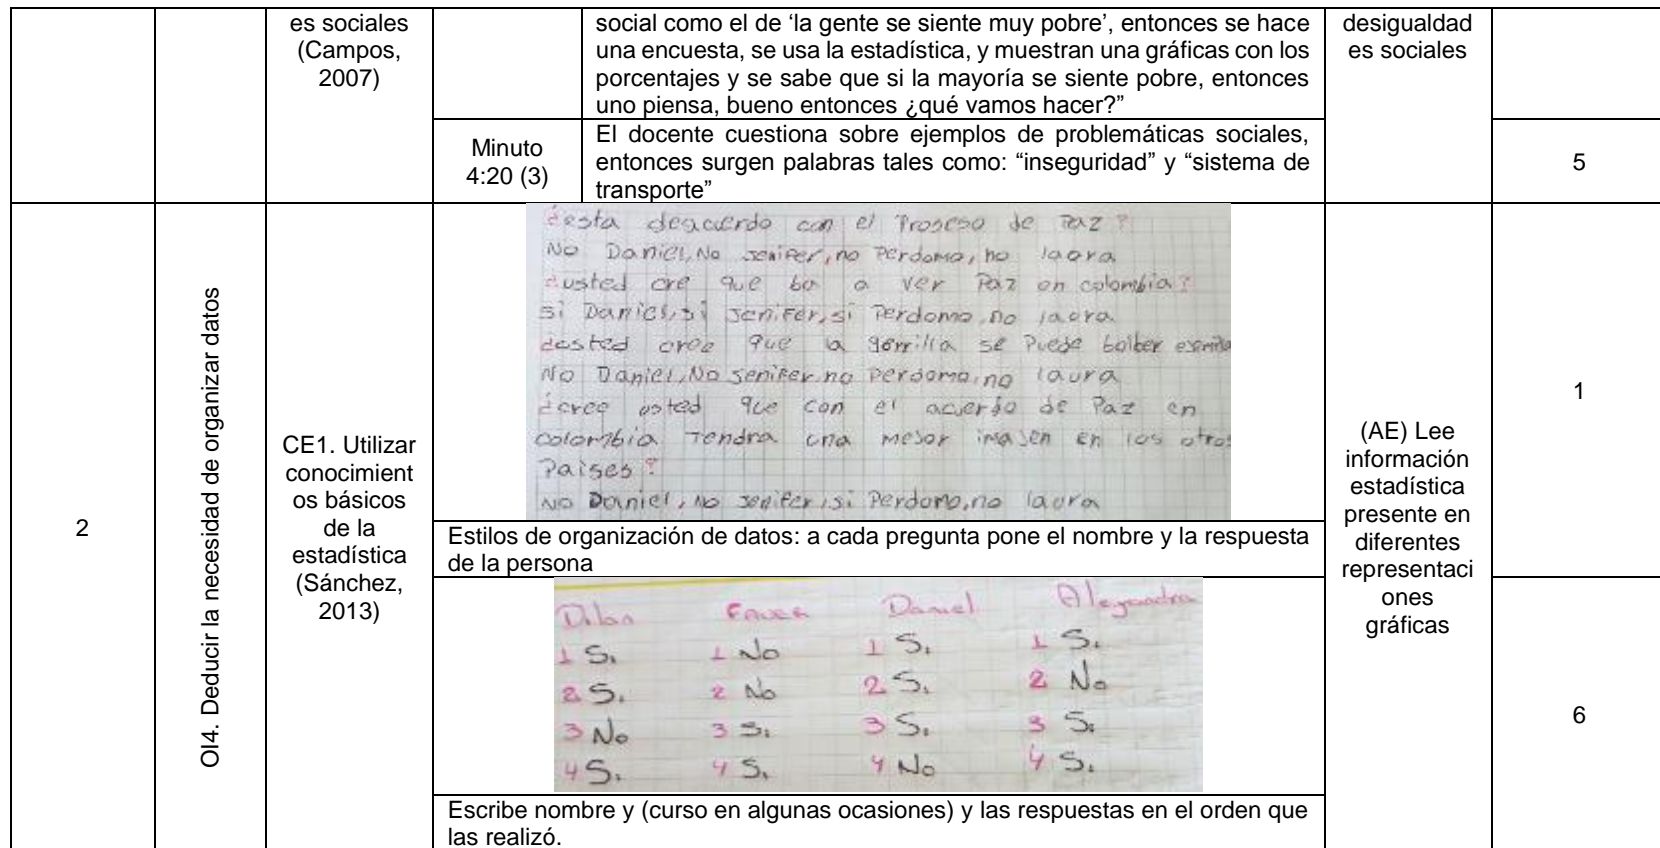 es sociales
(Campos,
2007)
social como el de ‘la gente se siente muy pobre’, entonces se hace
una encuesta, se usa la estadística, y muestran una gráficas con los
porcentajes y se sabe que si la mayoría se siente pobre, entonces
uno piensa, bueno entonces ¿qué vamos hacer?”
desigualdad
es sociales
Minuto
4:20 (3)
El docente cuestiona sobre ejemplos de problemáticas sociales,
entonces surgen palabras tales como: “inseguridad” y “sistema de
transporte”
5
2
OI4. Deducir la necesidad de organizar datos
CE1. Utilizar
conocimient
os básicos
de la
estadística
(Sánchez,
2013)
¿esta deacuerdo con el Proseso de Paz?
No Daniel, No jenifer, no Perdomo, no laora
¿usted cre que ba a ver Paz en colombia?
si Daniel, si jenifer, si Perdomo, no laora
¿usted cree que la gerrilla se Puede bolber
No Daniel, No jenifer, no Perdomo, no laura
¿cree usted que con el acuerdo de Paz en
colombia Tendra una mejor imajen en los otros
Paises?
No Daniel, no jenifer, si Perdomo, no laura
Estilos de organización de datos: a cada pregunta pone el nombre y la respuesta
de la persona
(AE) Lee
información
estadística
presente en
diferentes
representaci
ones
gráficas
1
Daniel Alejandra
1 Si 1 No 1 Si 1 Si
2 Si 2 No 2 Si 2 No
3 No 3 Si 3 Si 3 Si
4 Si 4 Si 4 No 4 Si
Escribe nombre y (curso en algunas ocasiones) y las respuestas en el orden que
las realizó.
6